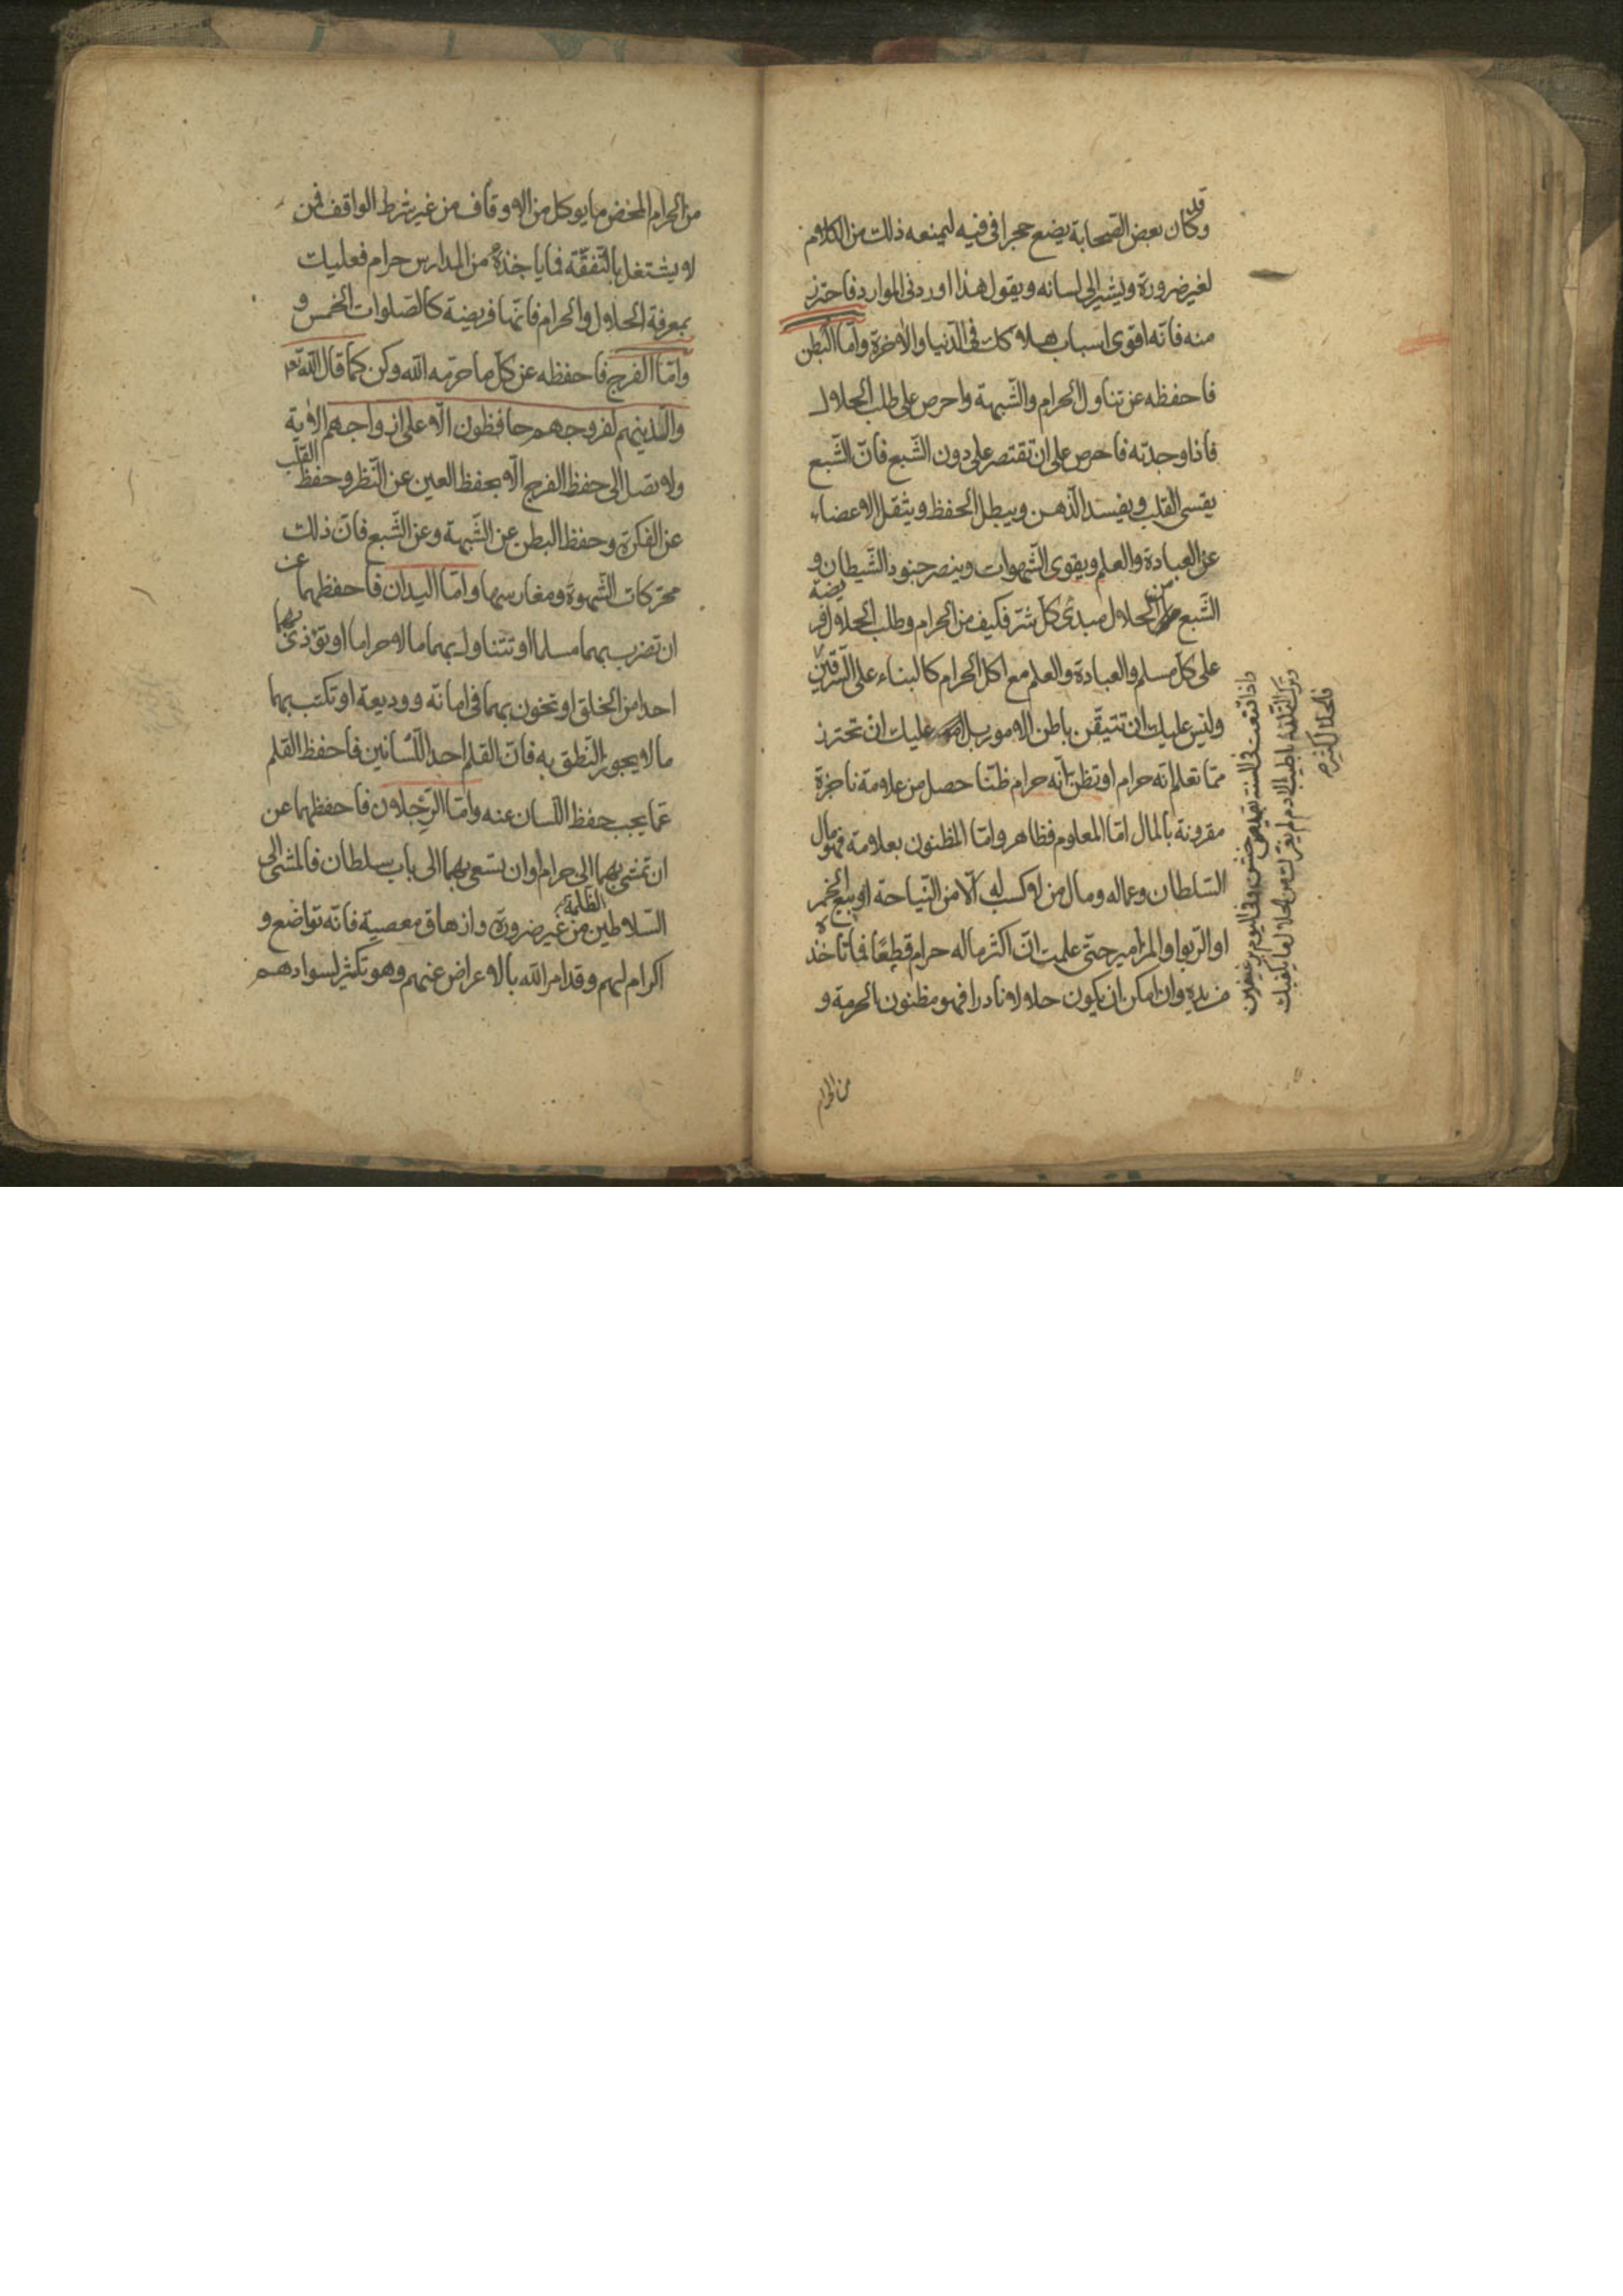 وقد كان بعض الصحابة يضع حجرا في فيه ليمنعه ذلك من الكلام
لغير ضرورة ويشير الى لسانه ويقول هذا اوردنى الموارد فاحترز
منه فانه اقوى اسباب هلاكك فى الدنيا والاخرة واما البطن
فاحفظه عن تناول الحرام والشبهة واحرص على طلب الحلال
فاذا وجدته فاحرص على ان تقتصر على دون الشبع فان الشبع
يقسى القلب ويفسد الذهن ويبطل الحفظ ويثقل الاعضاء
عن العبادة والعلم ويقوى الشهوات وينصر جنود الشيطان و
الشبع من الحلال مبدئ كل شر فكيف من الحرام وطلب الحلال فريضة
على كل مسلم والعبادة والعلم مع اكل الحرام كالبناء على السرقين
وليس عليك ان تتيقن باطن الامور بل عليك ان تحترز
مما تعلم انه حرام او تظن انه حرام ظنا حصل من علامة ناجزة
مقرونة بالمال اما المعلوم فظاهر واما المظنون بعلامة فهو مال
السلطان وعماله ومال من لا كسب له الا من النياحة او بيع الخمر
او الربوا والمزامير حتى علمت ان اكثر ماله حرام قطعا فما تاخذه
من يده وان امكن ان يكون حلالا نادرا فهو مظنون الحرمة و
من الحرام
واذا قنعت فى السنة بقميص خشن وفى اليوم برغيفين
وتركت التلذذ باطيب الادم لم يعزك من الحلال ما يكفيك
فالحلال كثير
من الحرام المحض ما يوكل من الاوقاف من غير شرط الواقف فمن
لا يشتغل بالتفقه فما ياخذه من المدارس حرام فعليك
بمعرفة الحلال والحرام فانها فريضة كالصلوات الخمس و
واما الفرج فاحفظه عن كل ما حرمه الله وكن كما قال الله تع
والذينهم لفروجهم حافظون الا على ازواجهم الاية
ولا تصل الى حفظ الفرج الا بحفظ العين عن النظر وحفظ القلب
عن الفكرة وحفظ البطن عن الشبهة وعن الشبع فان ذلك
محركات الشهوة ومغارسها واما اليدان فاحفظهما عن
ان تضرب بهما مسلما او تتناول بهما مالا حراما او تؤذى بهما
احدا من الخلق او تخون بهما فى امانة ووديعة او تكتب بهما
ما لا يجوز النطق به فان القلم احد اللسانين فاحفظ القلم
عما يجب حفظ اللسان عنه واما الرجلان فاحفظهما عن
ان تمشى بهما الى حرام او ان تسعى بهما الى باب سلطان فالمشى الى
السلاطين الظلمة من غير ضرورة وازهاق معصية فانه تواضع و
اكرام لهم وقد امر الله بالاعراض عنهم وهو تكثير لسوادهم